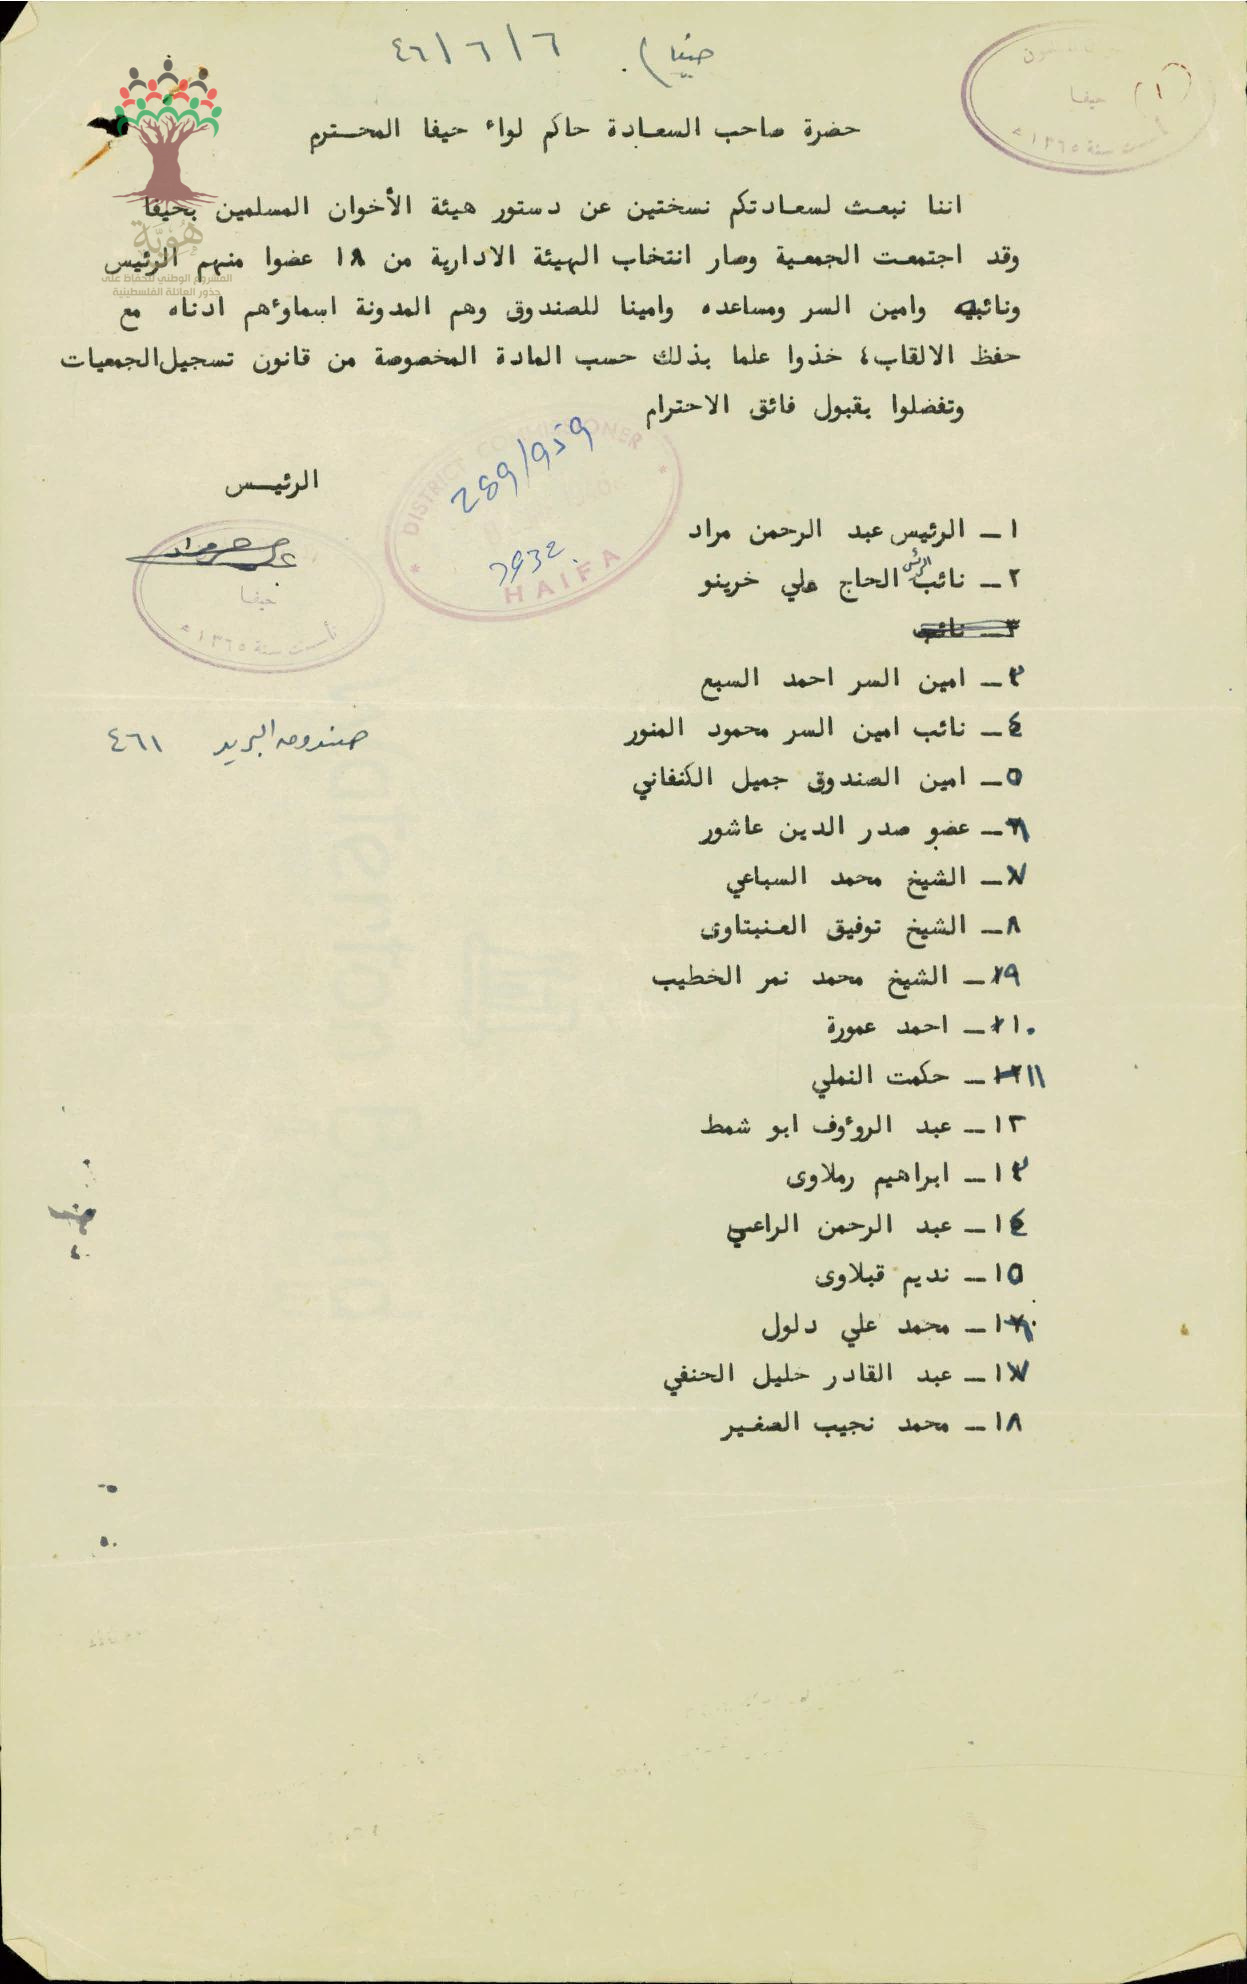 حيفا ٤٦/٦/٦
(١)
حيفا
تأسست سنة ١٣٦٥ هـ
حضرة صاحب السعادة حاكم لواء حيفا المحترم
اننا نبعث لسعادتكم نسختين عن دستور هيئة الأخوان المسلمين بحيفا
وقد اجتمعت الجمعية وصار انتخاب الهيئة الادارية من ١٨ عضوا منهم الرئيس
ونائبيه وامين السر ومساعده وامينا للصندوق وهم المدونة اسماؤهم ادناه مع
حفظ الالقاب ٤ خذوا علما بذلك حسب المادة المخصوصة من قانون تسجيل الجمعيات
وتفضلوا بقبول فائق الاحترام
هُوِيَّة
المشروع الوطني للحفاظ على
جذور العائلة الفلسطينية
DISTRICT COMMISSIONER
289/959
HAIFA
الرئيس
حيفا
تأسست سنة ١٣٦٥ هـ
صندوق البريد ٤٦١
١ـ الرئيس عبد الرحمن مراد
٢ـ نائب الرئيس الحاج علي خرينو
٣ـ نائب
٣ـ امين السر احمد السبع
٤ـ نائب امين السر محمود المنور
٥ـ امين الصندوق جميل الكنفاني
٦ـ عضو صدر الدين عاشور
٧ـ الشيخ محمد السباعي
٨ـ الشيخ توفيق العنبتاوى
٩ـ الشيخ محمد نمر الخطيب
١٠ـ احمد عمورة
١١ـ حكمت النملي
١٢ـ عبد الرؤوف ابو شمط
١٣ـ ابراهيم رملاوى
١٤ـ عبد الرحمن الراعي
١٥ـ نديم قبلاوى
١٦ـ محمد علي دلول
١٧ـ عبد القادر خليل الحنفي
١٨ـ محمد نجيب الصغير